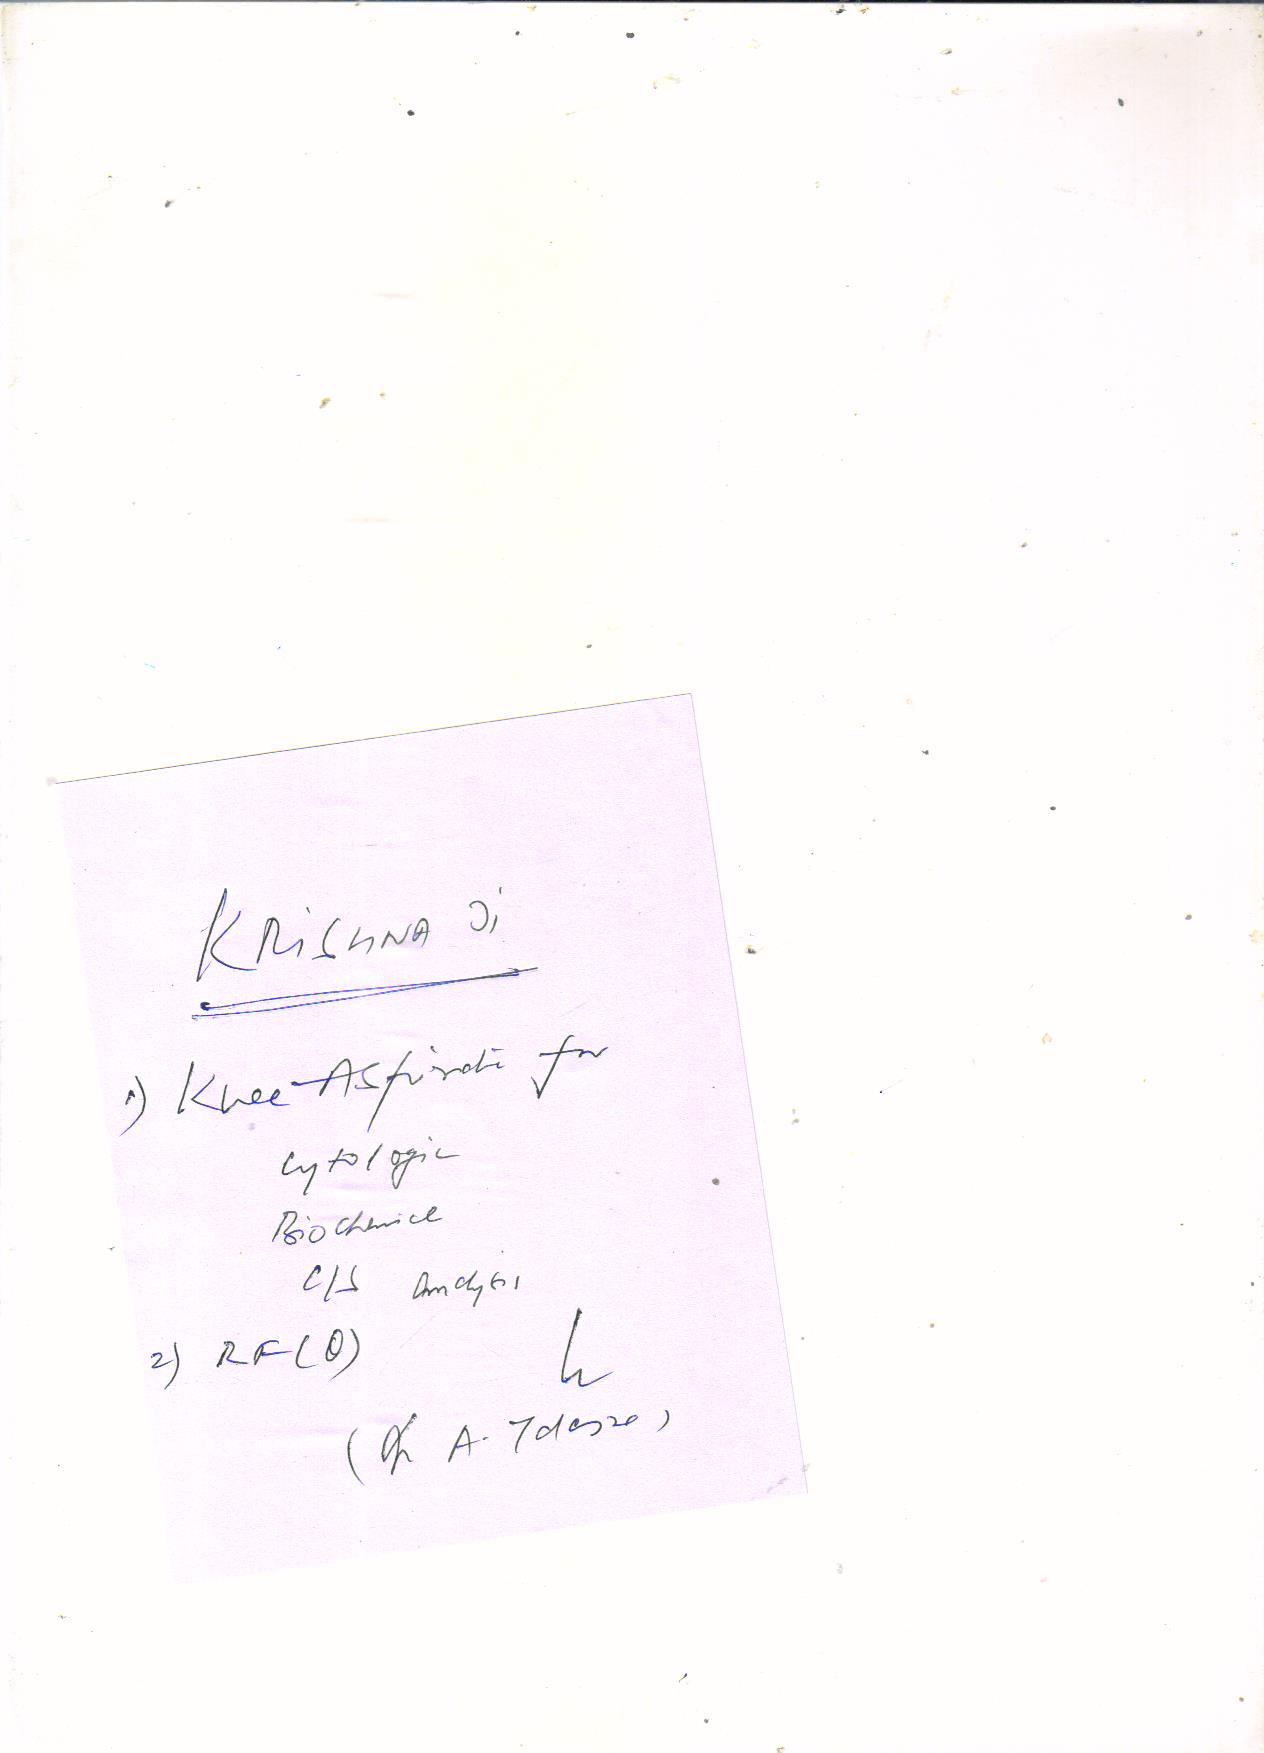 KRiSHNA Ji
1) Knee Aspirate for
Cytologic
Biochemical
C/S Analysis
2) RF (Θ)
(Dr A.